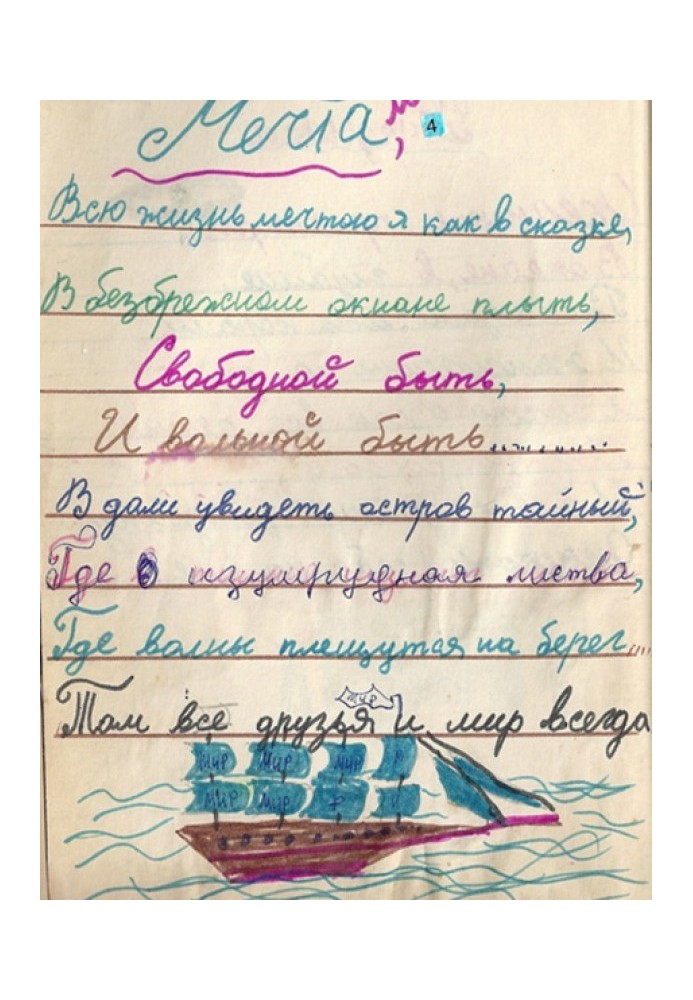 Мечта,
4
Всю жизнь мечтою я как в сказке,
В безбрежном окиане плыть,
Свободной быть,
И вольной быть..........
В дали увидеть остров тайный,
Где изумрудная листва,
Где волны плещутся на берег....
Там все друзья и мир всегда
мир
мир мир мир М
мир мир Р И